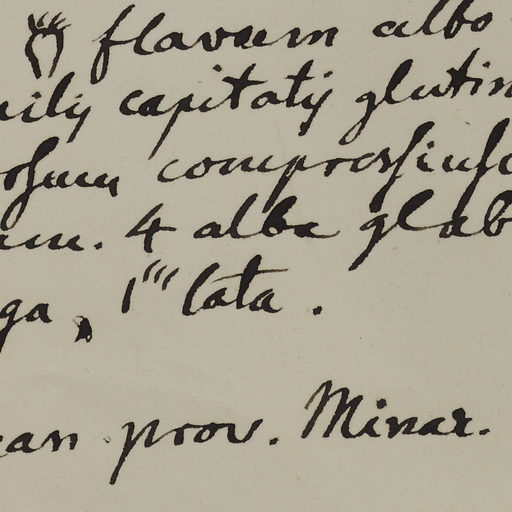 flavum albo
pilis capitatis glutin
rsum compressiusc
um. 4 alba glab
ga, 1''' lata.
an prov. Minar.